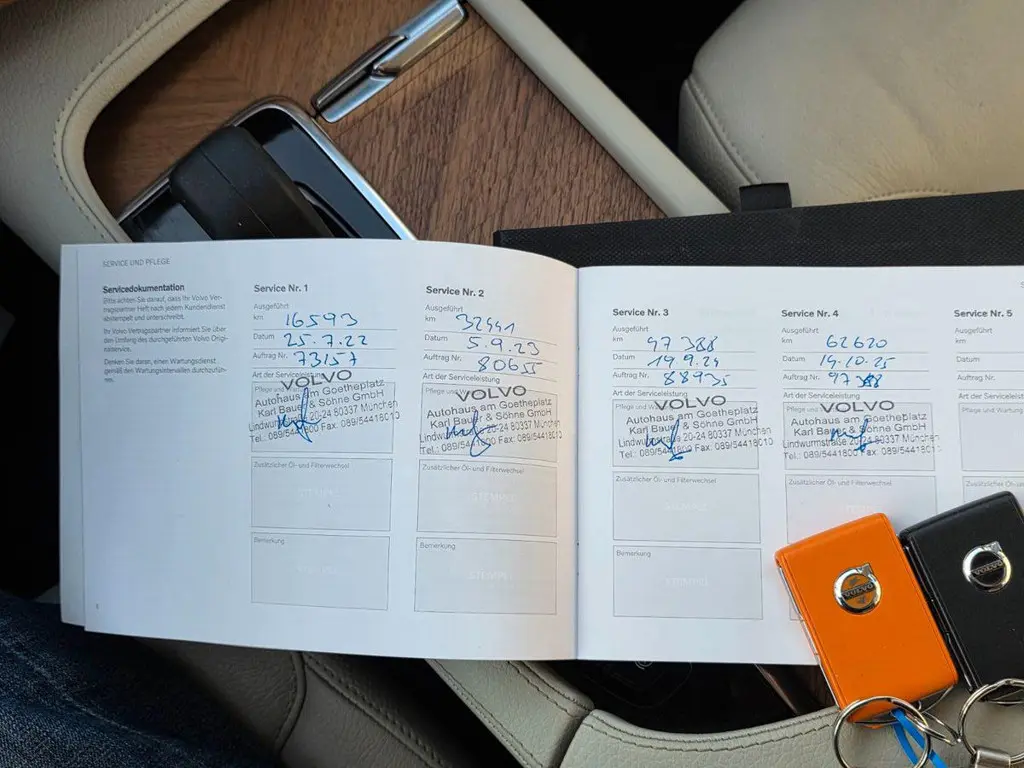 SERVICE UND PFLEGE
Servicedokumentation
Bitte achten Sie darauf, dass Ihr Volvo Ver-
tragspartner Heft nach jedem Kundendienst
abstempelt und unterschreibt.
Ihr Volvo-Vertragspartner informiert Sie über
den Umfang des durchgeführten Volvo Origi-
nalservice.
Denken Sie daran, einen Wartungsdienst
gemäß den Wartungsintervallen durchzufüh-
ren.
Service Nr. 1
Ausgeführt
km 16593
Datum 25.7.22
Auftrag Nr. 73157
Art der Serviceleistung
Pflege und
VOLVO
Autohaus am Goetheplatz
Karl Bauer & Söhne GmbH
Lindwurmstraße 20-24 80337 München
Tel.: 089/5441800 Fax: 089/54418010
Zusätzlicher Öl- und Filterwechsel
Bemerkung
STEMPEL
Service Nr. 2
Ausgeführt
km 32441
Datum 5.9.23
Auftrag Nr. 80655
Art der Serviceleistung
Pflege und
VOLVO
Autohaus am Goetheplatz
Karl Bauer & Söhne GmbH
Lindwurmstraße 20-24 80337 München
Tel.: 089/5441800 Fax: 089/54418010
Zusätzlicher Öl- und Filterwechsel
STEMPEL
Bemerkung
STEMPEL
Service Nr. 3
Ausgeführt
km 47388
Datum 19.9.24
Auftrag Nr. 88935
Art der Serviceleistung
Pflege und
VOLVO
Autohaus am Goetheplatz
Karl Bauer & Söhne GmbH
Lindwurmstraße 20-24 80337 München
Tel.: 089/5441800 Fax: 089/54418010
Zusätzlicher Öl- und Filterwechsel
STEMPEL
Bemerkung
STEMPEL
Service Nr. 4
Ausgeführt
km 62620
Datum 14.10.25
Auftrag Nr.
Art der Serviceleistung
Pflege und
VOLVO
Autohaus am Goetheplatz
Karl Bauer & Söhne GmbH
Lindwurmstraße 20-24 80337 München
Tel.: 089/5441800 Fax: 089/54418010
Zusätzlicher Öl- und Filterwechsel
Service Nr. 5
Ausgeführt
km
Datum
Auftrag Nr.
Art der Serviceleistung
Pflege und Wartung
Zusätzlicher Öl-
VOLVO
VOLVO